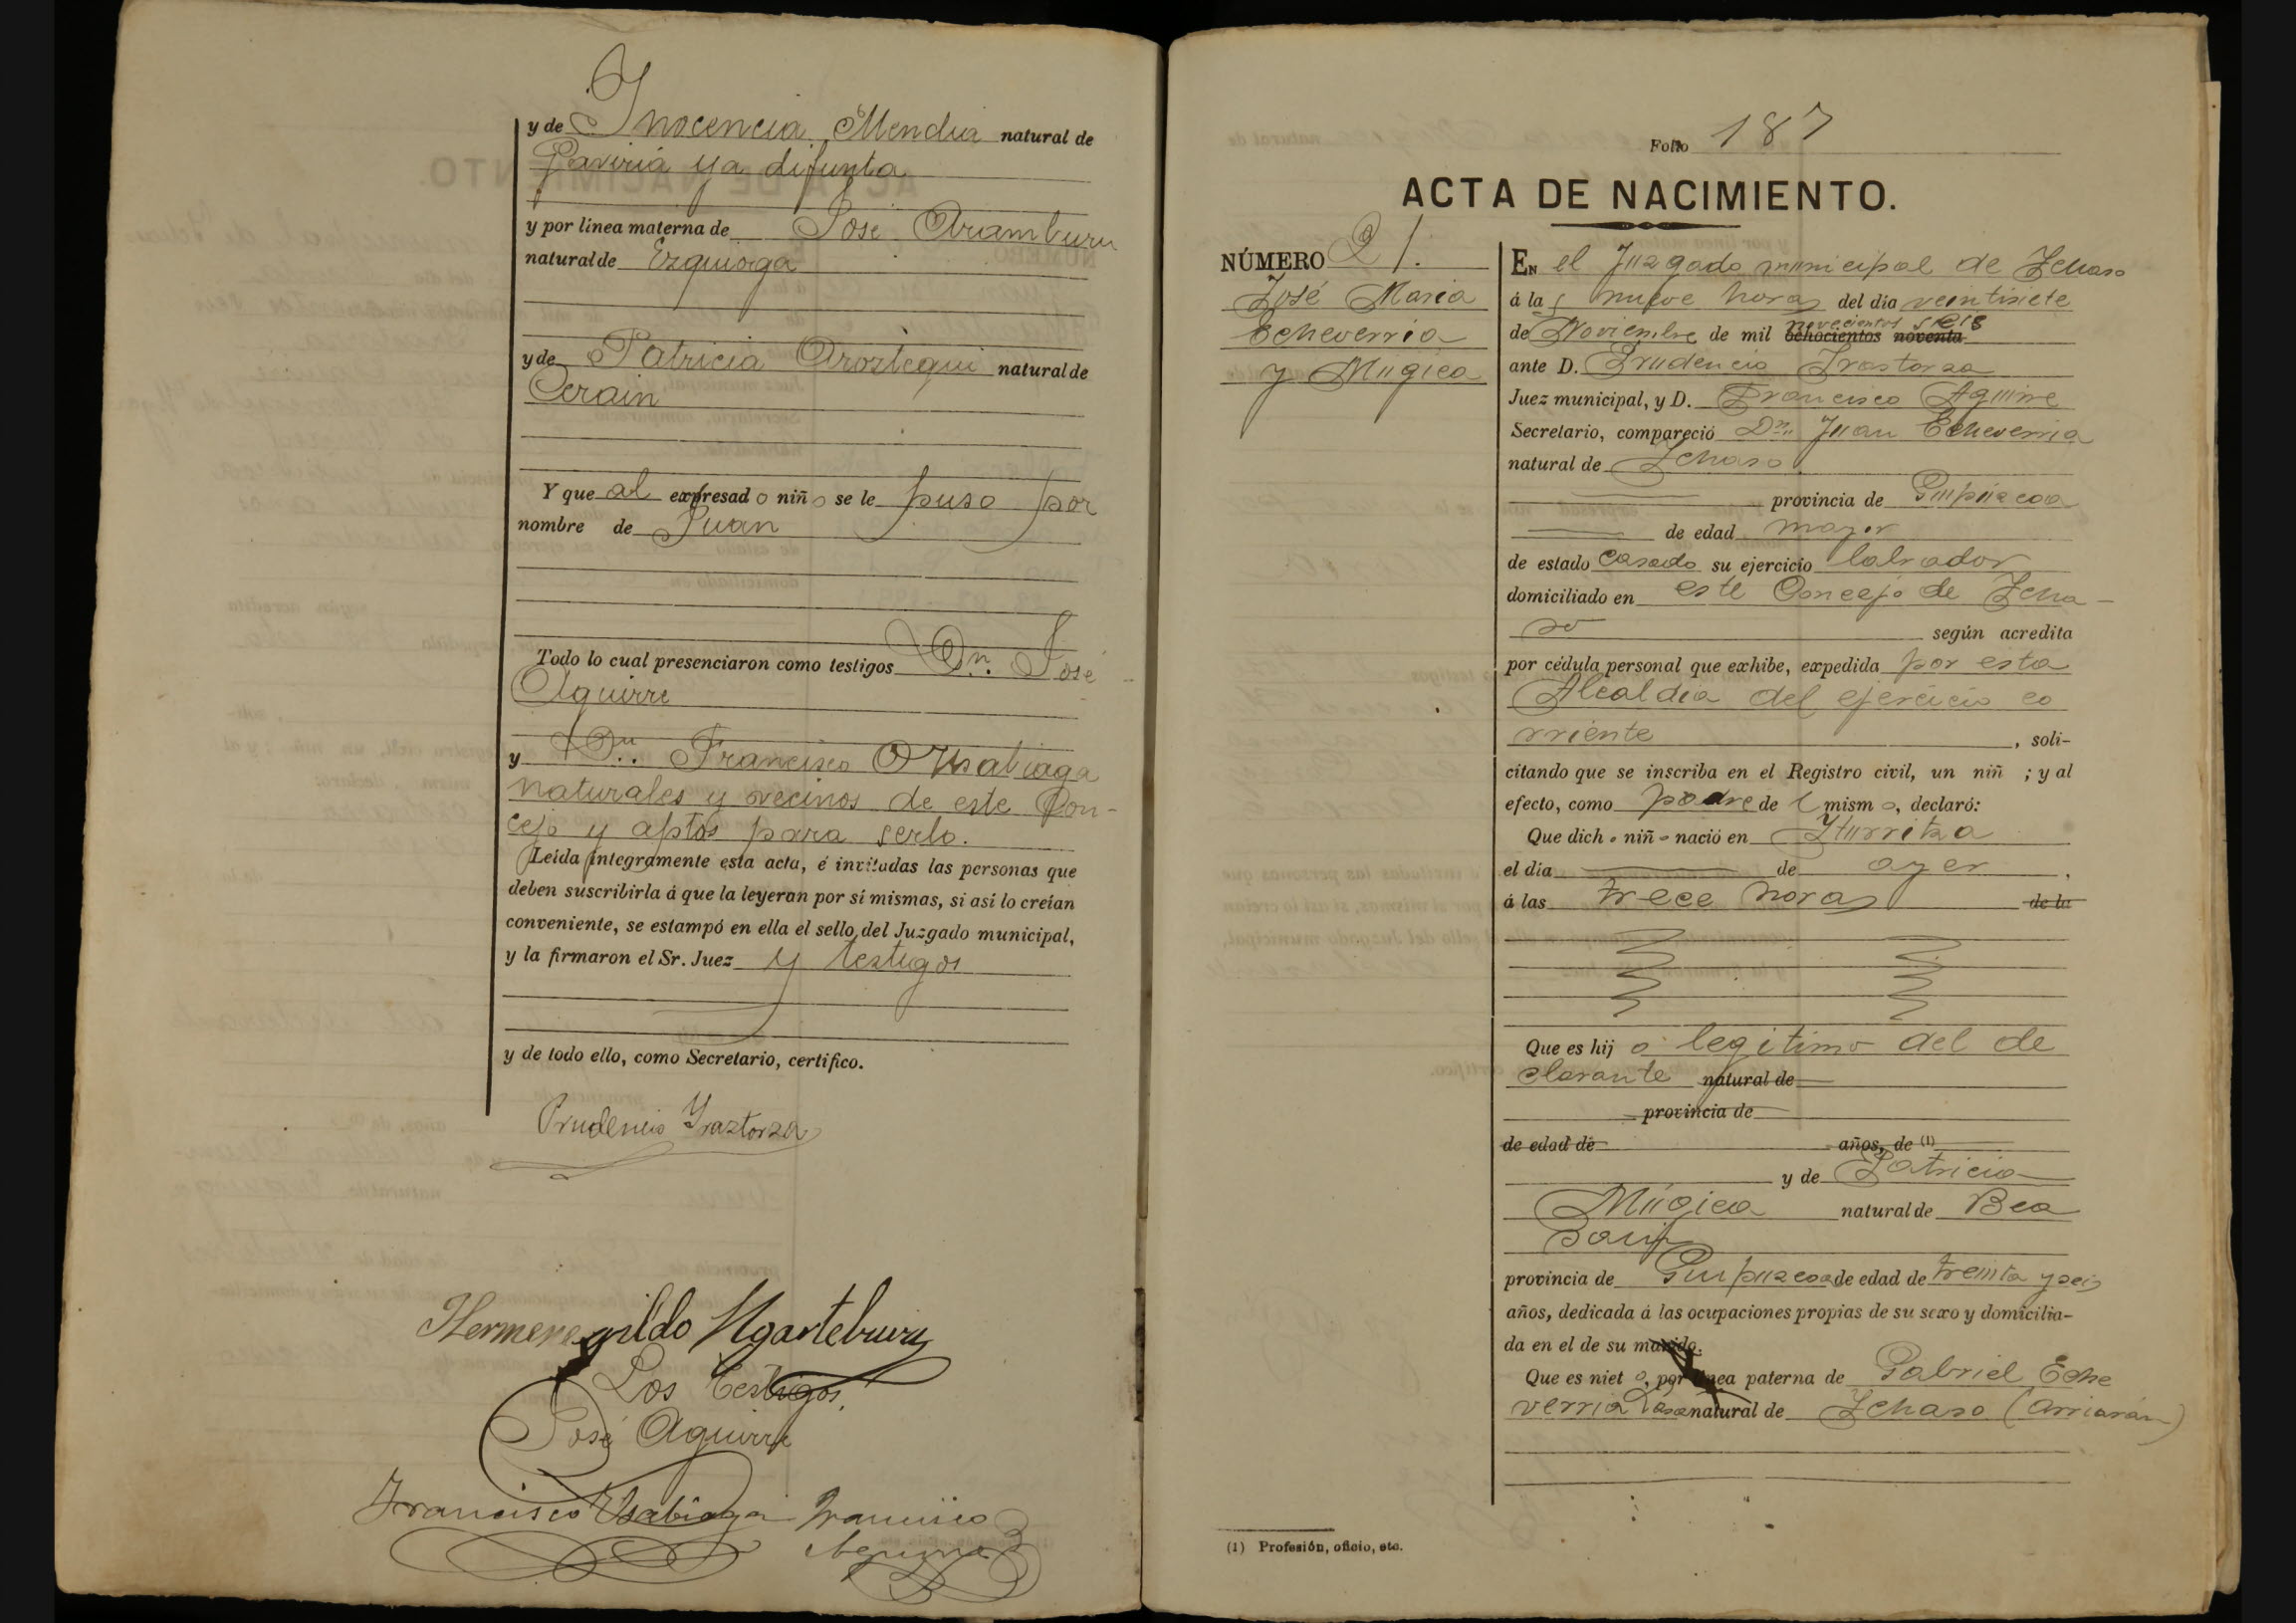 y de Inocencia Mendia natural de
Gaviria ya difunta
y por linea materna de José Aramburu
natural de Ezquioga
y de Patricia Aroztegui natural de
Cerain
Y que al expresado niño se le puso por
nombre de Juan
Todo lo cual presenciaron como testigos Dn. José
Aguirre
y Dn. Francisco Usabiaga
naturales y vecinos de este Con-
cejo y aptos para serlo.
Leída íntegramente esta acta, é invitadas las personas que
deben suscribirla á que la leyeran por sí mismas, si así lo creían
conveniente, se estampó en ella el sello del Juzgado municipal,
y la firmaron el Sr. Juez y testigos
y de todo ello, como Secretario, certifico.
Prudencio Yraztorza
Hermenegildo Ugarteburu
Los testigos.
José Aguirre
Francisco Usabiaga Francisco
Aguirre
Folio 187
ACTA DE NACIMIENTO.
NÚMERO 21.
José Maria
Echeverria
y Mugica
EN el Juzgado municipal de Ichaso
á las nueve horas del día veintisiete
de Noviembre de mil ochocientos noventa novecientos seis
ante D. Prudencio Irastorza
Juez municipal, y D. Francisco Aguirre
Secretario, compareció Dn. Juan Echeverria
natural de Ichaso
provincia de Guipúzcoa
de edad mayor
de estado casado su ejercicio labrador
domiciliado en este Concejo de Icha-
so según acredita
por cédula personal que exhibe, expedida por esta
Alcaldia del ejercicio co
rriente, soli-
citando que se inscriba en el Registro civil, un niñ ; y al
efecto, como padre del mismo, declaró:
Que dicho niño nació en Yturritza
el día de ayer,
á las trece horas de la
Que es hijo legitimo del de
clarante natural de
provincia de
de edad de años, de (1)
y de Patricia
Múgica natural de Bea
sain
provincia de Guipuzcoa de edad de treinta y seis
años, dedicada á las ocupaciones propias de su sexo y domicilia-
da en el de su marido.
Que es nieto, por línea paterna de Gabriel Eche
verria natural de Ichaso (Arriarán)
(1) Profesión, oficio, etc.